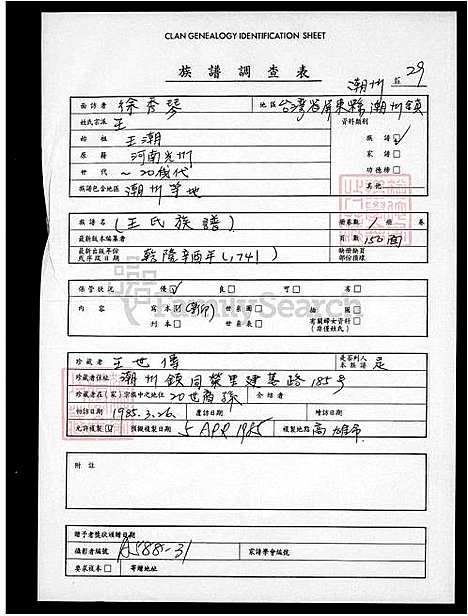 CLAN GENEALOGY IDENTIFICATION SHEET
族譜調查表
潮州 29
面訪者 徐秀琴 地區 台灣省屏東縣潮州鎮
姓氏宗派 王 資料類別
始祖 王潮 族譜
原籍 河南光州 家譜
世代 ~20幾代 功德榜
族譜包含地區 潮州等地 其他
族譜名 (王氏族譜) 冊卷數 1 冊 卷
最新版本編纂者 頁數 150面
最新出版年份或序跋日期 乾隆辛酉年(1741) 缺冊缺頁部份損壞
保管狀況 優 良 可 劣
內容 寫本 (影印) 世系圖 插圖
刊本 世系表 有關婦女資料(除僅姓氏)
FamilySearch
珍藏者 王世傳 是否列入本族譜 是
珍藏者住址 潮州鎮同榮里建基路185号
珍藏者在(家)宗族中之地位 20世裔孫 介紹者
初訪日期 1985.3.26. 覆訪日期 增訪日期
允許複製 拍攝複製日期 5 APR 1985 複製地點 高雄市
附註
贈予者獎狀頒贈日期
攝影者編號 A588-31 家譜學會編號
要求複本 寄贈地址